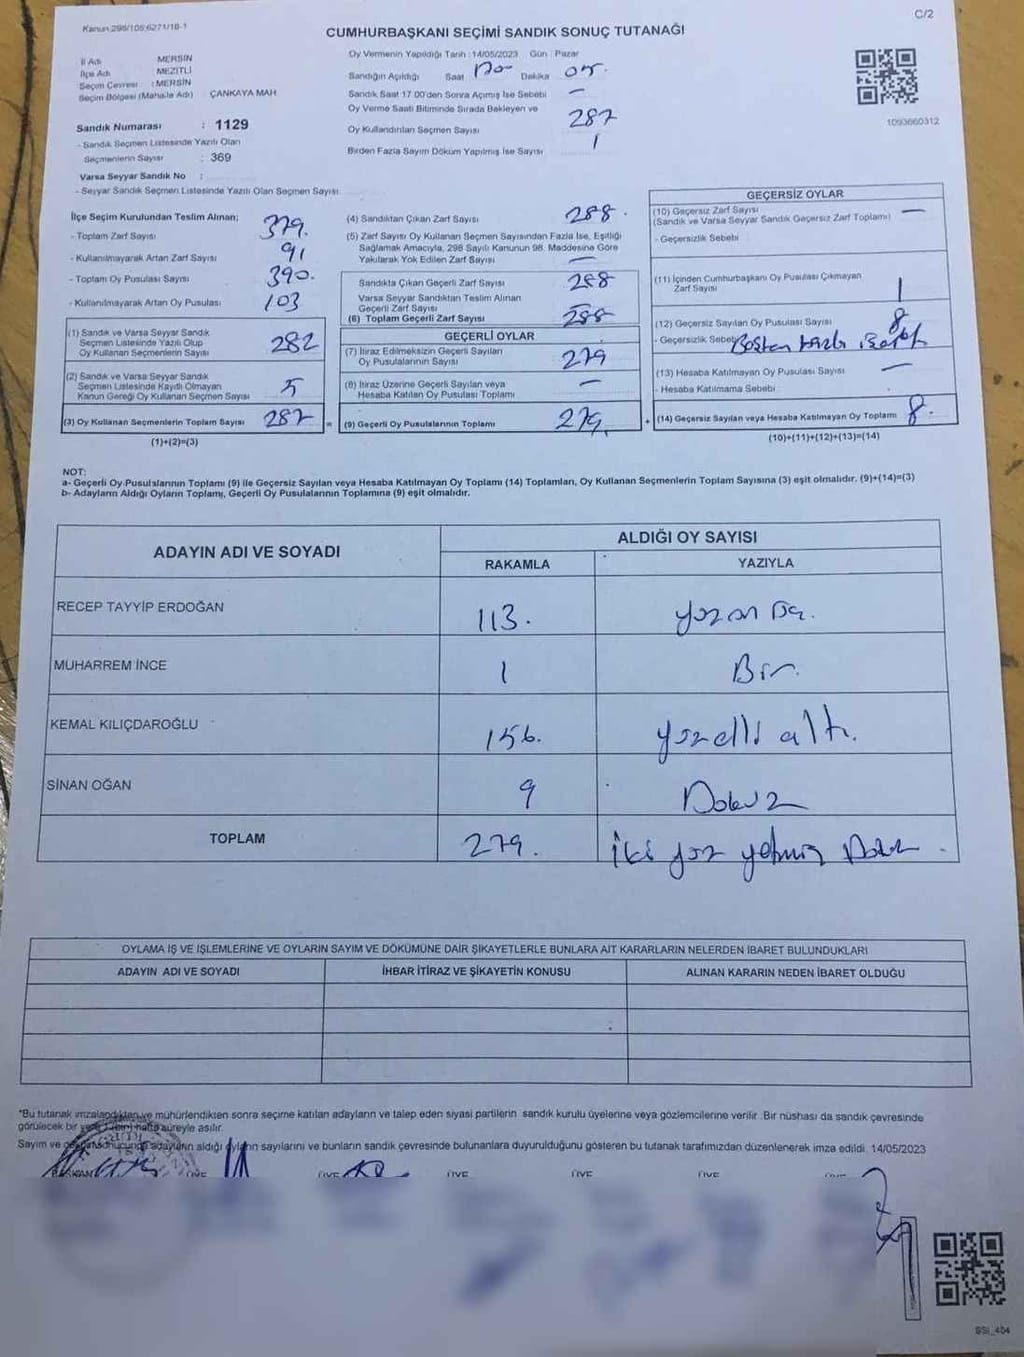 Kanun 298/105;6271/18-1
C/2
CUMHURBAŞKANI SEÇİMİ SANDIK SONUÇ TUTANAĞI
İl Adı MERSİN
İlçe Adı MEZİTLİ
Seçim Çevresi : MERSİN
Seçim Bölgesi (Mahalle Adı) ÇANKAYA MAH
Sandık Numarası : 1129
- Sandık Seçmen Listesinde Yazılı Olan
Seçmenlerin Sayısı : 369
Varsa Seyyar Sandık No :
- Seyyar Sandık Seçmen Listesinde Yazılı Olan Seçmen Sayısı
Oy Vermenin Yapıldığı Tarih :14/05/2023 Gün Pazar
Sandığın Açıldığı Saat Dakika 05
Sandık Saat 17.00'den Sonra Açımış İse Sebebi —
Oy Verme Saati Bitiminde Sırada Bekleyen ve
Oy Kullandırılan Seçmen Sayısı 287
Birden Fazla Sayım Döküm Yapılmış İse Sayısı 1
1093660312
İlçe Seçim Kurulundan Teslim Alınan;
- Toplam Zarf Sayısı 379.
- Kullanılmayarak Artan Zarf Sayısı 91
- Toplam Oy Pusulası Sayısı 390.
- Kullanılmayarak Artan Oy Pusulası 103
(1) Sandık ve Varsa Seyyar Sandık
Seçmen Listesinde Yazılı Olup
Oy Kullanan Seçmenlerin Sayısı 282
(2) Sandık ve Varsa Seyyar Sandık
Seçmen Listesinde Kayıtlı Olmayan
Kanun Gereği Oy Kullanan Seçmen Sayısı 5
(3) Oy Kullanan Seçmenlerin Toplam Sayısı 287 =
(1)+(2)=(3)
(4) Sandıktan Çıkan Zarf Sayısı 288.
(5) Zarf Sayısı Oy Kullanan Seçmen Sayısından Fazla İse, Eşitliği
Sağlamak Amacıyla, 298 Sayılı Kanunun 98. Maddesine Göre
Yakılarak Yok Edilen Zarf Sayısı —
Sandıkta Çıkan Geçerli Zarf Sayısı 288
Varsa Seyyar Sandıktan Teslim Alınan
Geçerli Zarf Sayısı
(6) Toplam Geçerli Zarf Sayısı 288
GEÇERLİ OYLAR
(7) İtiraz Edilmeksizin Geçerli Sayılan
Oy Pusulalarının Sayısı 279
(8) İtiraz Üzerine Geçerli Sayılan veya
Hesaba Katılan Oy Pusulası Toplamı —
(9) Geçerli Oy Pusulalarının Toplamı 279 +
GEÇERSİZ OYLAR
(10) Geçersiz Zarf Sayısı —
(Sandık ve Varsa Seyyar Sandık Geçersiz Zarf Toplamı)
- Geçersizlik Sebebi
(11) İçinden Cumhurbaşkanı Oy Pusulası Çıkmayan
Zarf Sayısı 1
(12) Geçersiz Sayılan Oy Pusulası Sayısı 8
- Geçersizlik Sebebi
(13) Hesaba Katılmayan Oy Pusulası Sayısı —
- Hesaba Katılmama Sebebi
(14) Geçersiz Sayılan veya Hesaba Katılmayan Oy Toplamı 8.
(10)+(11)+(12)+(13)=(14)
NOT:
a- Geçerli Oy Pusulalarının Toplamı (9) ile Geçersiz Sayılan veya Hesaba Katılmayan Oy Toplamı (14) Toplamları, Oy Kullanan Seçmenlerin Toplam Sayısına (3) eşit olmalıdır. (9)+(14)=(3)
b- Adayların Aldığı Oyların Toplamı, Geçerli Oy Pusulalarının Toplamına (9) eşit olmalıdır.
ADAYIN ADI VE SOYADI ALDIĞI OY SAYISI
RAKAMLA YAZIYLA
RECEP TAYYİP ERDOĞAN 113.
MUHARREM İNCE 1 Bir.
KEMAL KILIÇDAROĞLU 156. yüzelli altı.
SİNAN OĞAN 9 Dokuz
TOPLAM 279. iki yüz yetmiş Dokuz.
OYLAMA İŞ VE İŞLEMLERİNE VE OYLARIN SAYIM VE DÖKÜMÜNE DAİR ŞİKAYETLERLE BUNLARA AİT KARARLARIN NELERDEN İBARET BULUNDUKLARI
ADAYIN ADI VE SOYADI İHBAR İTİRAZ VE ŞİKAYETİN KONUSU ALINAN KARARIN NEDEN İBARET OLDUĞU
*Bu tutanak imzalandıktan ve mühürlendikten sonra seçime katılan adayların ve talep eden siyasi partilerin sandık kurulu üyelerine veya gözlemcilerine verilir. Bir nüshası da sandık çevresinde
görülecek bir süreyle asılır.
Sayım ve adayların aldığı oyların sayılarını ve bunların sandık çevresinde bulunanlara duyurulduğunu gösteren bu tutanak tarafımızdan düzenlenerek imza edildi. 14/05/2023
BAŞKAN ÜYE ÜYE ÜYE ÜYE ÜYE
SSİ_404